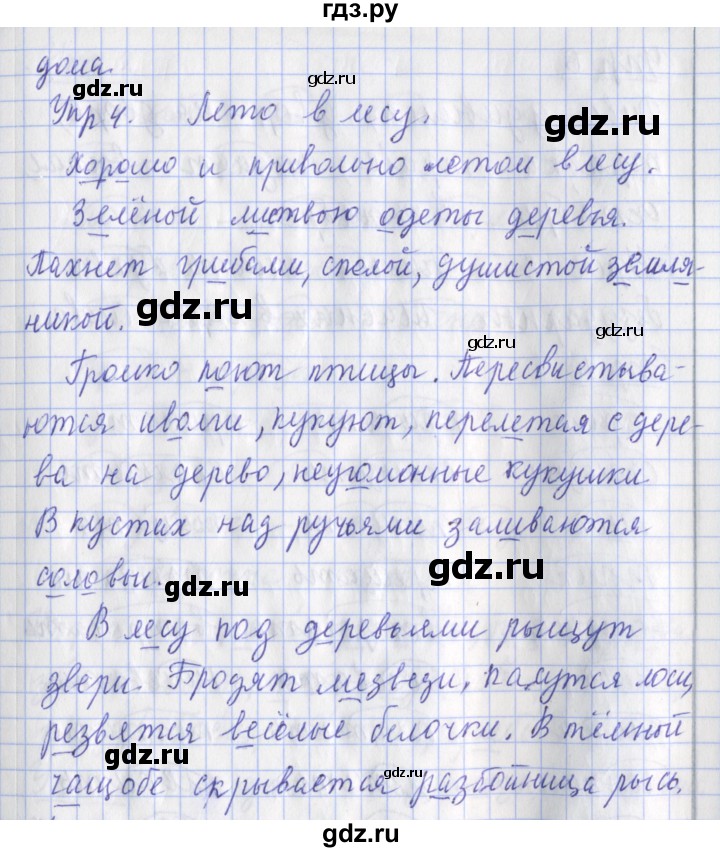 гдз.ру
дома.
gdz.ru
gdz.ru
Упр. 4. Лето в лесу.
gdz.ru
Хорошо и привольно летом в лесу.
gdz.ru
Зелёной листвою одеты деревья.
Пахнет грибами, спелой, душистой земля-
никой.
gdz.ru
gdz.ru
gdz.ru
Громко поют птицы. Пересвистыва-
ются иволги, кукуют, перелетая с дере-
ва на дерево, неугомонные кукушки
В кустах над ручьями заливаются
соловьи.
gdz.ru
gdz.ru
В лесу под деревьями рыщут
gdz.ru
звери. Бродят медведи, пасутся лоси,
резвятся весёлые белочки. В тёмной
gdz.ru
чащобе скрывается разбойница рысь.
gdz.ru
gdz.ru